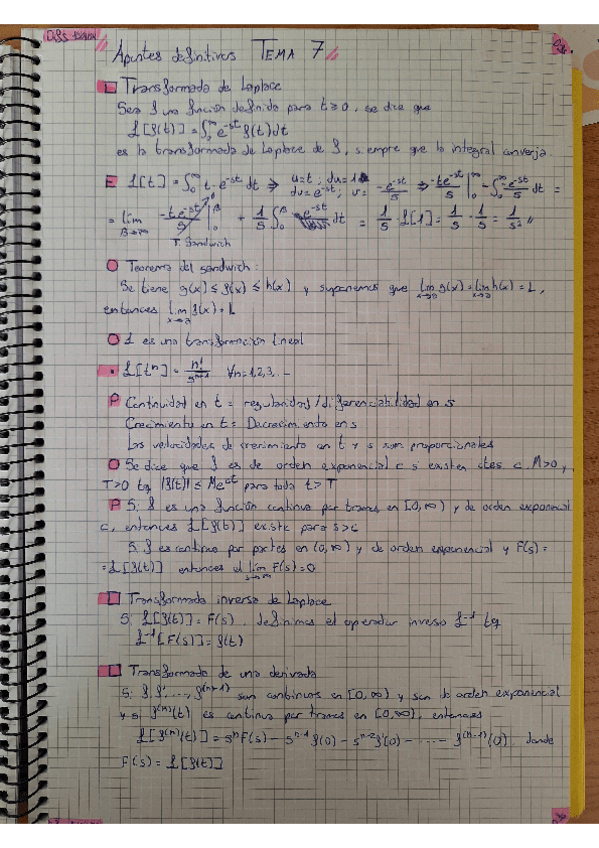 Apuntes definitivos TEMA 7
Transformada de Laplace
Sea f una función definida para t≥0, se dice que
L[f(t)] = ∫₀^∞ e^-st f(t)dt
es la transformada de Laplace de f, siempre que la integral converja.
E L[t] = ∫₀^∞ t·e^-st dt ⇒ u=t; du=1 dv=e^-st; v= -e^-st/s ⇒ -te^-st/s |₀^∞ - ∫₀^∞ -e^-st/s dt =
= lim B→∞ -te^-st/s |₀^B + 1/s ∫₀^B e^-st dt = 1/s · L[1] = 1/s · 1/s = 1/s² //
T. Sandwich
Teorema del sandwich:
Se tiene g(x) ≤ f(x) ≤ h(x) y suponemos que lim x→a g(x) = lim x→a h(x) = L,
entonces lim x→a f(x) = L
L es una transformación lineal
L[tⁿ] = n!/s^n+1 ∀n=1,2,3,...
P Continuidad en t = regularidad/diferenciabilidad en s
Crecimiento en t = Decrecimiento en s
Las velocidades de crecimiento en t y s son proporcionales
Se dice que f es de orden exponencial c si existen ctes c, M>0 y
T>0 tq |f(t)| ≤ Me^ct para toda t>T
P Si f es una función continua por tramos en [0,∞) y de orden exponencial
c, entonces L[f(t)] existe para s>c
Si f es continua por partes en (0,∞) y de orden exponencial y F(s) =
= L[f(t)] entonces el lim s→∞ F(s)=0
Transformada inversa de Laplace
Si L[f(t)] = F(s), definimos el operador inverso L^-1 tq
L^-1[F(s)] = f(t)
Transformada de una derivada
Si f, f',..., f^(n-1) son continuas en [0,∞) y son de orden exponencial
y si f^(n)(t) es continua por tramos en [0,∞), entonces
L[f^(n)(t)] = sⁿF(s) - s^n-1 f(0) - s^n-2 f'(0) - ...... - f^(n-1)(0) donde
F(s) = L[f(t)]